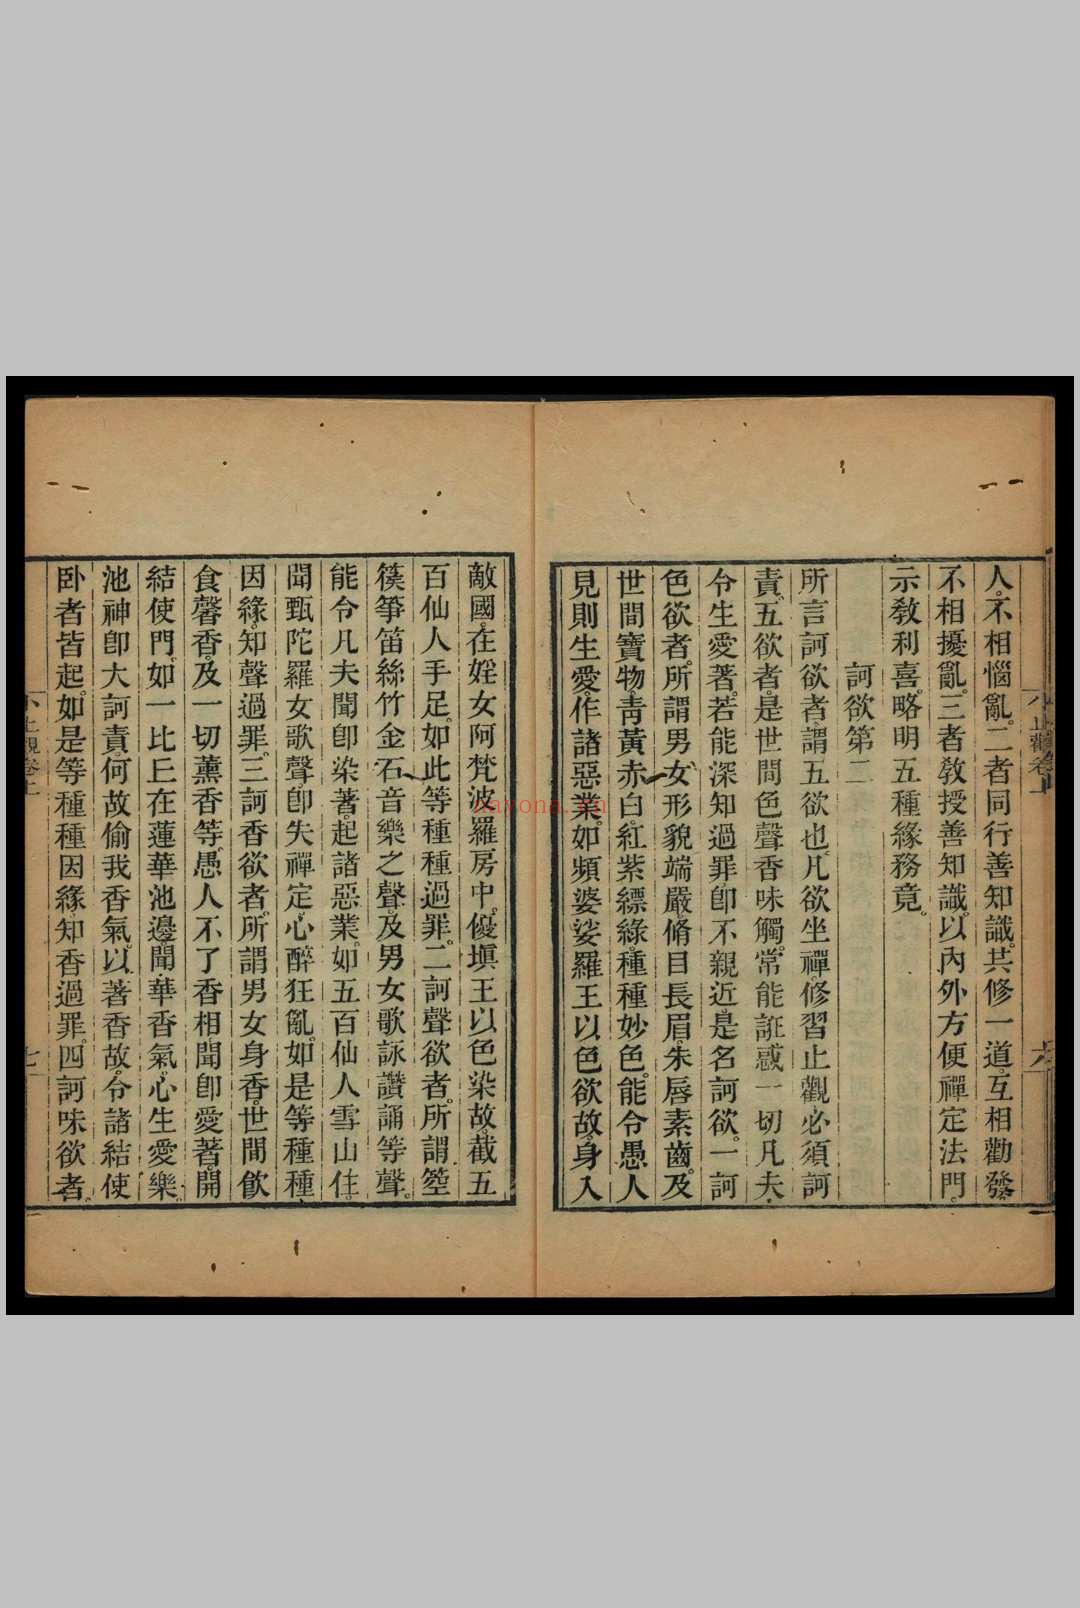 小止觀卷上 六
人。不相惱亂。二者同行善知識。共修一道。互相勸發。
不相擾亂。三者敎授善知識。以內外方便禪定法門。
示敎利喜。略明五種緣務竟。
訶欲第二
所言訶欲者。謂五欲也。凡欲坐禪。修習止觀。必須訶
責。五欲者。是世間色聲香味觸。常能誑惑一切凡夫。
令生愛著。若能深知過罪。卽不親近。是名訶欲。一訶
色欲者。所謂男女形貌端嚴。脩目長眉。朱唇素齒。及
世間寶物。靑黃赤白。紅紫縹綠。種種妙色。能令愚人
見則生愛。作諸惡業。如頻婆娑羅王以色欲故。身入
敵國。在婬女阿梵波羅房中。優塡王以色染故。截五
百仙人手足。如此等種種過罪。二訶聲欲者。所謂箜
篌筝笛絲竹金石音樂之聲。及男女歌詠讚誦等聲。
能令凡夫聞卽染著。起諸惡業。如五百仙人雪山住。
聞甄陀羅女歌聲。卽失禪定。心醉狂亂。如是等種種
因緣。知聲過罪。三訶香欲者。所謂男女身香。世間飮
食馨香。及一切薰香等。愚人不了香相。聞卽愛著。開
結使門。如一比丘在蓮華池邊。聞華香氣。心生愛樂。
池神卽大訶責。何故偷我香氣。以著香故。令諸結使
卧者皆起。如是等種種因緣。知香過罪。四訶味欲者。
小止觀卷上 七
nayona.cn